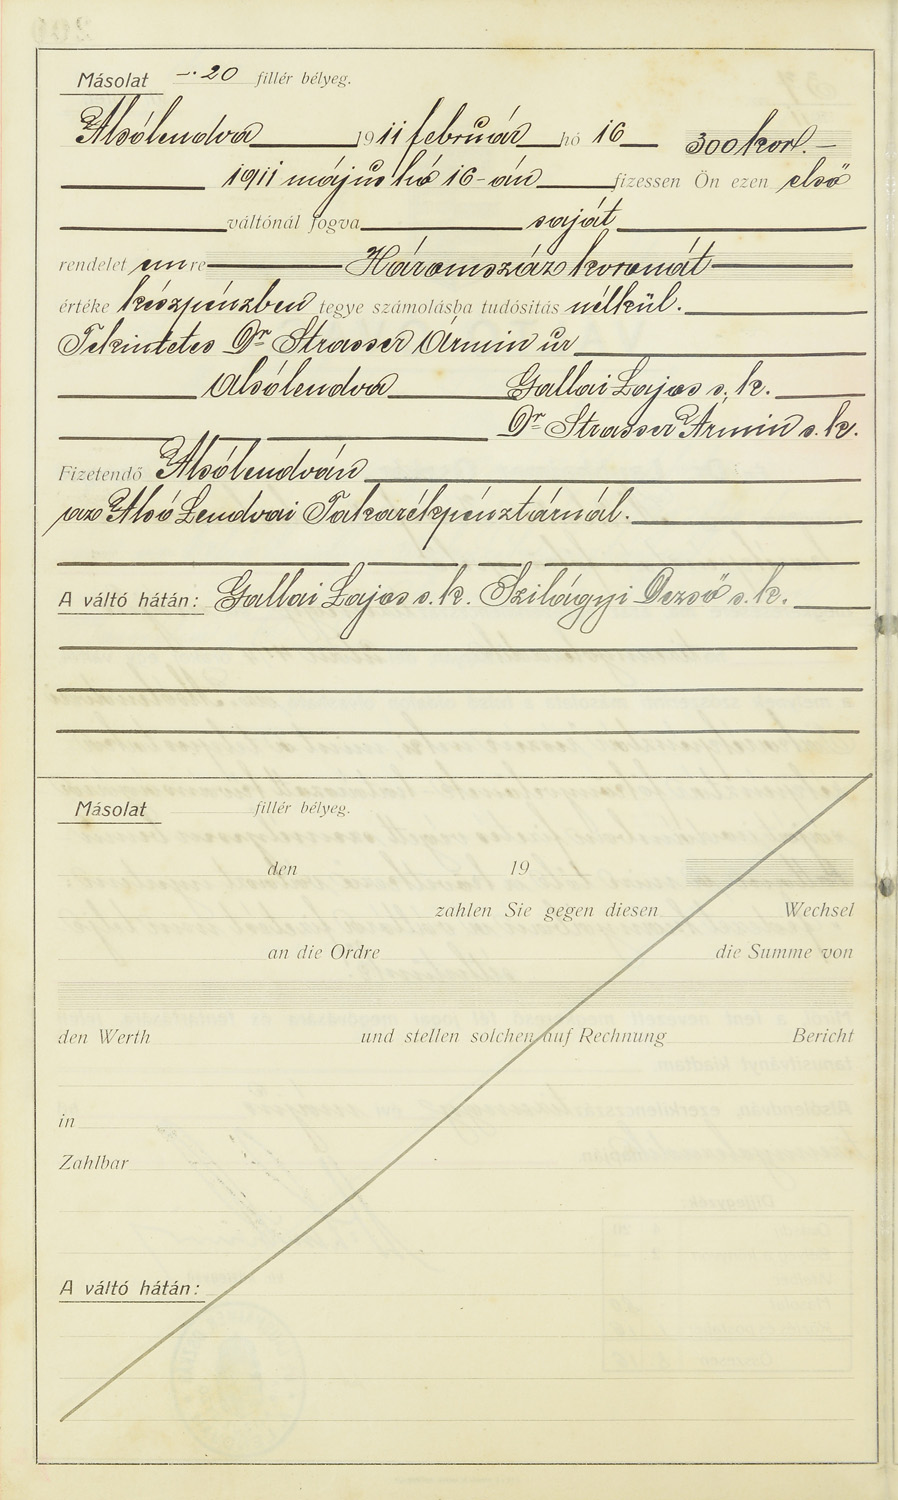 Másolat —.20 fillér bélyeg.
Alsólendva 1911 február hó 16 300 kor. —
1911 május hó 16-án fizessen Ön ezen első
váltónál fogva saját
rendelet em re Háromszáz koronát
értéke készpénzben tegye számolásba tudósitás nélkül.
Tekintetes Dr. Strasser Ármin úr
Alsólendva Gallai Lajos s. k.
Dr. Strasser Ármin s. k.
Fizetendő Alsólendván
az Alsó Lendvai Takarékpénztárnál.
A váltó hátán: Gallai Lajos s. k. Szilágyi Dezső s. k.
Másolat fillér bélyeg.
den 19
zahlen Sie gegen diesen Wechsel
an die Ordre die Summe von
den Werth und stellen solchen auf Rechnung Bericht
in
Zahlbar
A váltó hátán: